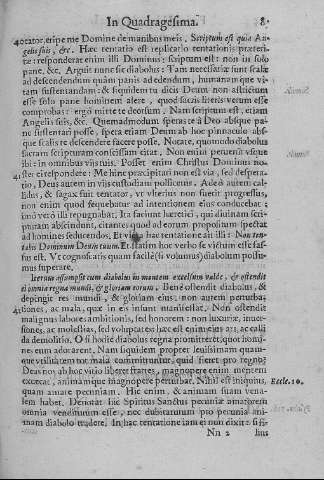 In Quadragesima. 8
40 ctator, eripe me Domine de manibus meis, Scriptum est quia An-
gelis suis, &c. Haec tentatio est replicatio tentationis præteri-
tæ: responderat enim illi Dominus: scriptum est: non in solo
pane, &c. Arguit nunc sic diabolus: Tam necessariæ sunt scalæ
ad descendendum quàm panis ad edendum, humanamque vi-
tam sustentandam: & siquidem tu dicis Deum non astrictum
esse solo pane hominem alere, quod sacris literis verum esse
comprobas: ergo mitte te deorsum. Nam scriptum est, etiam
Angelis suis, &c. Quemadmodum speras te à Deo absque pa-
ne sustentari posse, spera etiam Deum ab hoc pinnaculo abs-
que scalis te descendere facere posse. Notate, quomodo diabolus
sacram scripturam concisam citat, Non enim
ibi: in omnibus vijs tuis. Posset enim Christus Dominus no-
41 ster ei respondere: Me hinc præcipitari non est via, sed despera-
tio, Deus autem in vijs custodiam pollicetur. Adeò autem cal-
lidus, & sagax fuit tentator, vt vlterius non fuerit progressus,
non enim quod sequebatur ad intentionem eius conducebat;
imò verò illi repugnabat. Ita faciunt hæretici, qui diuinam scri-
pturam abscindunt, citantes quod ad eorum propositum spectat
ad homines seducendos. Et vide hac tentatione ait illi: Non ten-
tabis Dominum Deum tuum. Et statim hoc verbo se victum esse fas-
sus est. Vt cognoscatis quam facilè (si volumus) diabolum possu-
mus superare.
Iterum assumpsit eum diabolus in montem excelsum valde, & ostendit
ei omnia regna mundi, & gloriam eorum, Benè ostendit diabolus, &
depingit res mundi, & gloriam eius: non autem perturba-
41 tiones, ac mala, quæ in eis insunt manifestat. Non ostendit
malignus labores ambitionis, sed honorem: non luxuriæ, inue-
ctiones, ac molestias, sed voluptates: hæc est enim eius ars, ac calli-
da demolitio. O si hodie diabolus regna promitteret, quot homi-
nes eum adorarent. Nam siquidem propter leuissimam quam-
que vtilitatem tot mala committuntur, quid fieret pro regno?
Deas nos ab hoc vitio liberet fratres, magnopere enim mentem
excæcat, animamque magnopere perturbat. Nihil est iniquius, Eccle. 10.
quam amare pecuniam. Hic enim & animam suam vena-
lem habet. Denotat hic Spiritus Sanctus pecuniæ amatorem
omnia venditurum esse, nec dubitaturum pro pecunia ani-
mam diabolo tradere. In hac tentatione iam ei non dixit: si fi-
Nn 2 lius